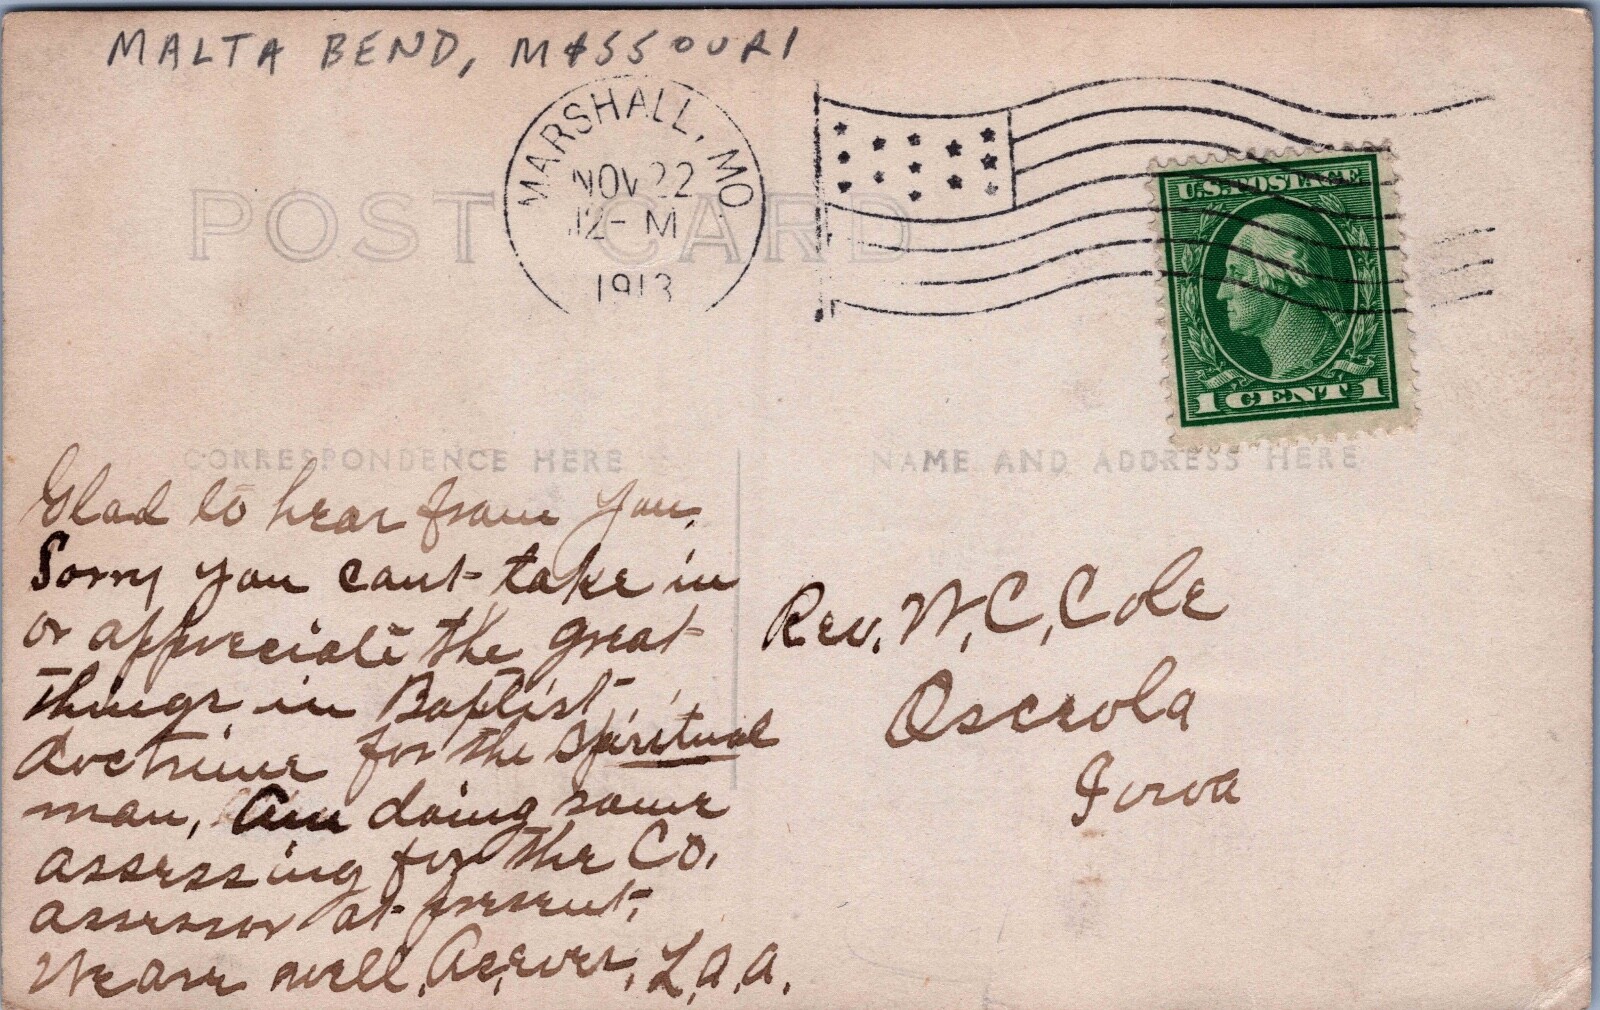 MALTA BEND, MISSOURI
MARSHALL, MO.
NOV 22
12-M
1913
U.S. POSTAGE
1 CENT 1
POST CARD
CORRESPONDENCE HERE
NAME AND ADDRESS HERE
Glad to hear from you,
Sorry you cant take in
or appreciate the great
things in Baptist
doctrine for the Spiritual
man, Am doing some
assessing for the Co,
assessor at present,
We are well, L,A,A,
Rev, W, C, Cole
Osceola
Iowa